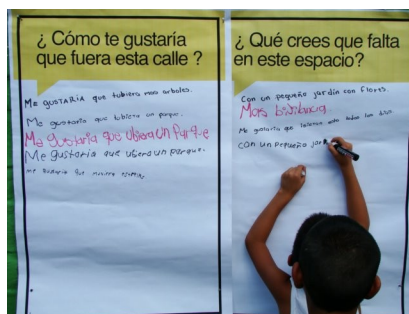 ¿ Cómo te gustaría
que fuera esta calle ?
Me gustaria que tubiera mas arboles.
Me gustaria que ubiera un parque.
Me gustaria que ubiera un Parque
Me gustaria que ubiera un parque.
me gustaria que
¿ Qué crees que falta
en este espacio?
Con un pequeño jardín con flores.
Mas
Me gustaria que
con un pequeño jar